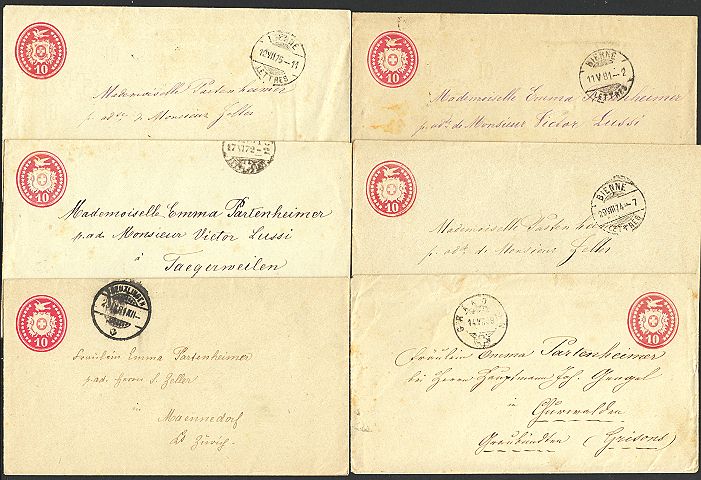 10
BIENNE
LETTRES
Mademoiselle Partenheimer
p. adr. de Monsieur Zeller
10
BIENNE
11 V 81-2
LETTRES
Mademoiselle Emma Partenheimer
p. adr. de Monsieur Victor Lussi
10
Mademoiselle Emma Partenheimer
p. ad. Monsieur Victor Lussi
à
Taegerweilen
10
BIENNE
29 VIII 74-7
LETTRES
Mademoiselle Partenheimer
p. adr. de Monsieur Zeller
10
Fräulein Emma Partenheimer
p. ad. Herrn S. Zeller
in
Maennedorf
Zürich.
10
Fräulein Emma Partenheimer
bei Herrn Hauptmann Joh. Gengel
in
Churwalden
Graubündten (Grisons)